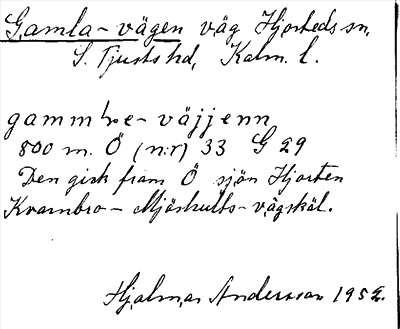 Gamla-vägen väg Hjorteds sn.
S. Tjusts hd, Kalm. l.
gammbre-väjjenn
800 m. Ö (n:r) 33 G 29
Den gick fram Ö sjön Hjorten
Kvarnbro- Mjöshults-vägskäl.
Hjalmar Andersson 1952.